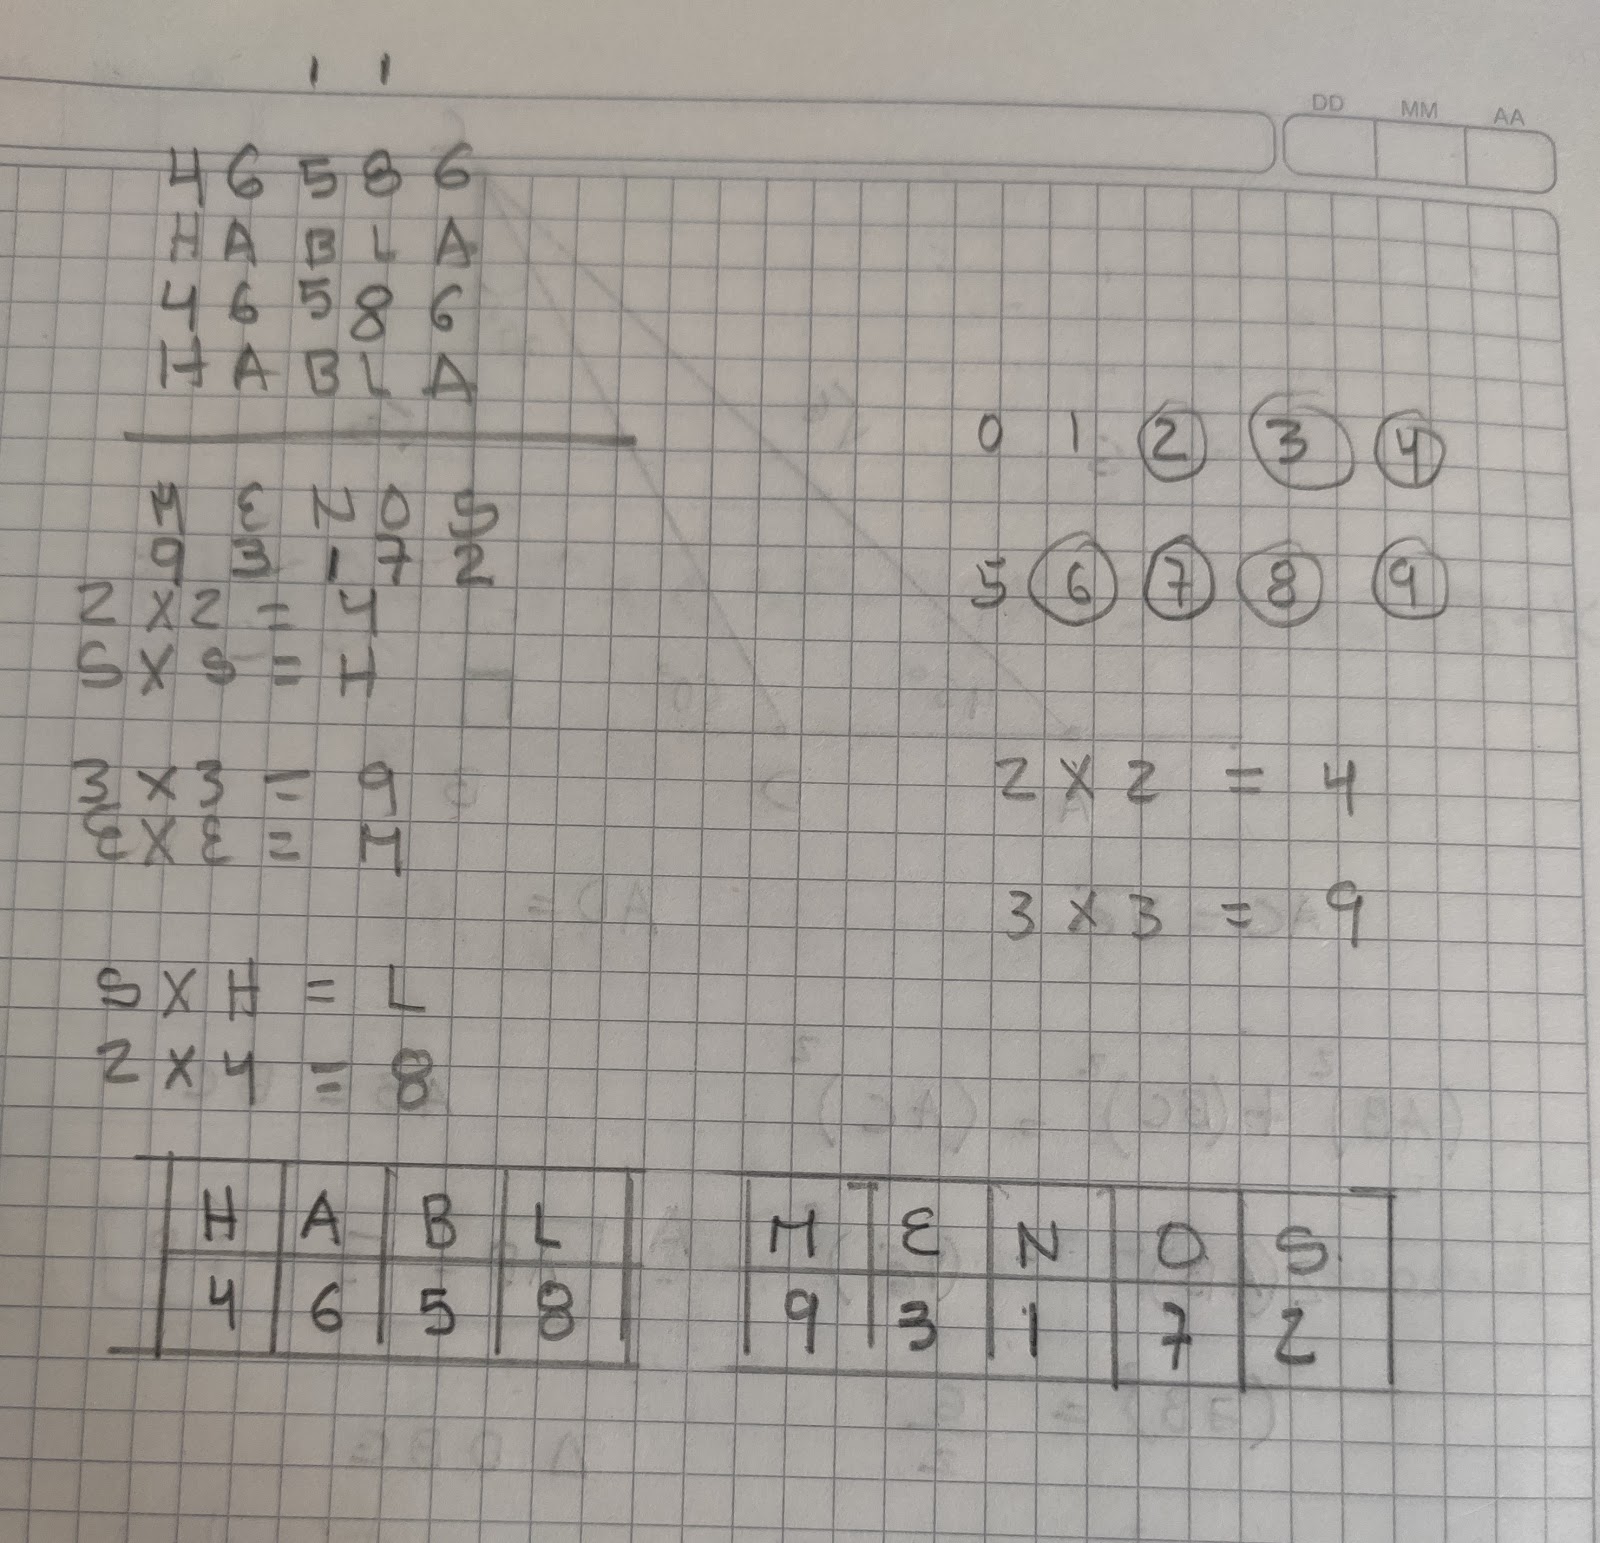 1 1
DD MM AA
4 6 5 8 6
H A B L A
4 6 5 8 6
H A B L A
M E N O S
9 3 1 7 2
2 X 2 = 4
S X S = H
3 X 3 = 9
E X E = M
S X H = L
2 X 4 = 8
0 1 2 3 4
5 6 7 8 9
2 X 2 = 4
3 X 3 = 9
H A B L
4 6 5 8
M E N O S
9 3 1 7 2